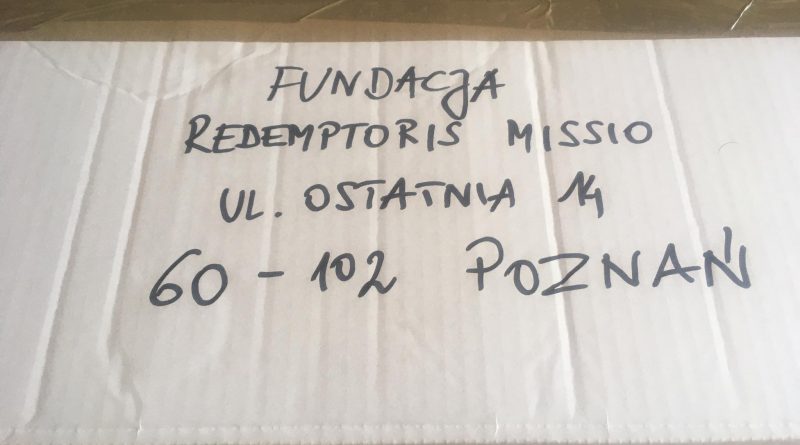 FUNDACJA
REDEMPTORIS MISSIO
UL. OSTATNIA 14
60-102 POZNAŃ